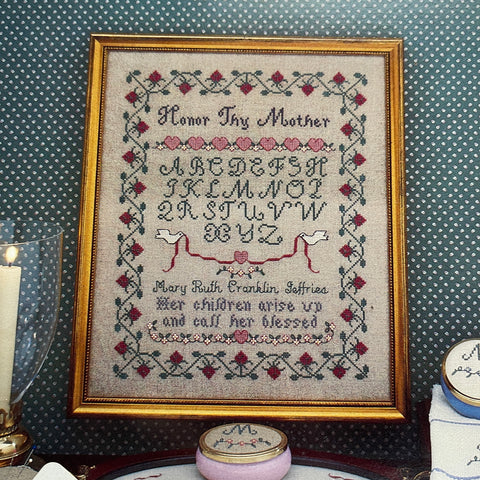 Honor Thy Mother
ABCDEFGH
IJKLMNOP
QRSTUVW
XYZ
Mary Ruth Franklin Jeffries
Her children arise up
and call her blessed
M